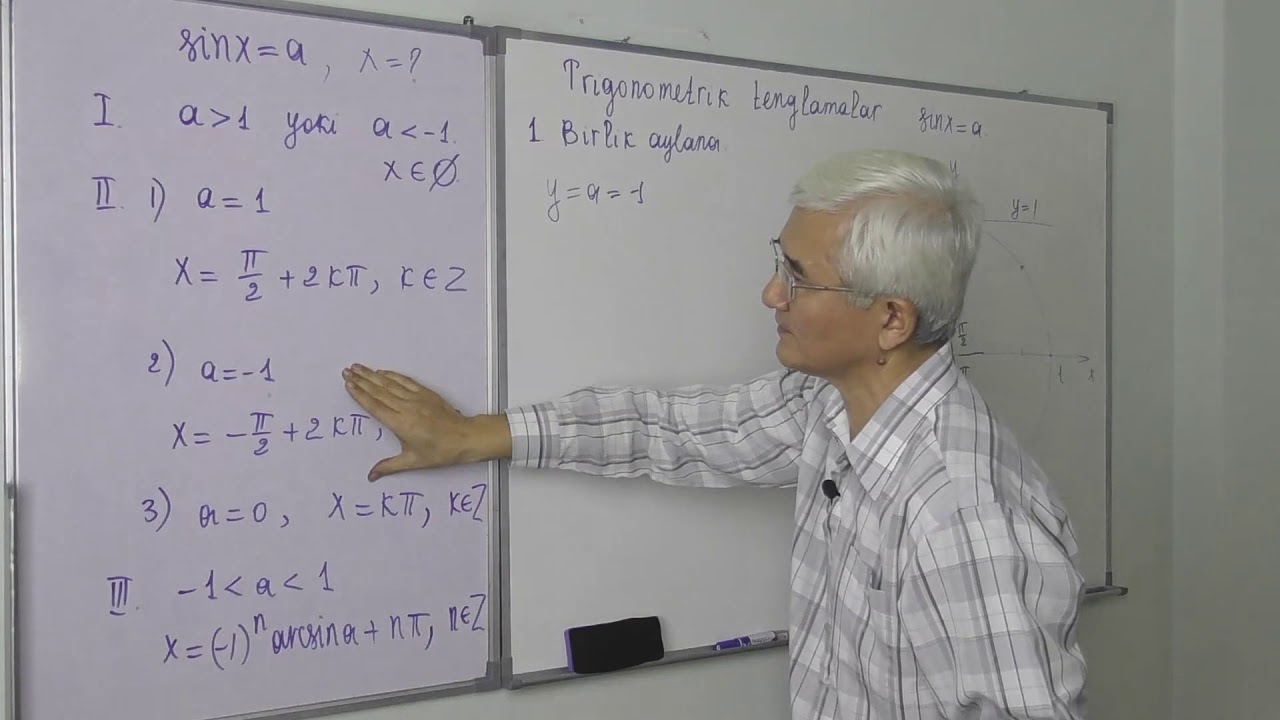 sinx = a, x = ?
I. a > 1 yoki a < -1.
x ∈ ∅.
II. 1) a = 1
x = π/2 + 2kπ, k ∈ Z
2) a = -1
x = -π/2 + 2kπ,
3) a = 0, x = kπ, k ∈ Z
III. -1 < a < 1
x = (-1)ⁿ arcsina + nπ, n ∈ Z
Trigonometrik tenglamalar sinx = a.
1 Birlik aylana.
y = a = -1
y
y = 1
π/2
1 x